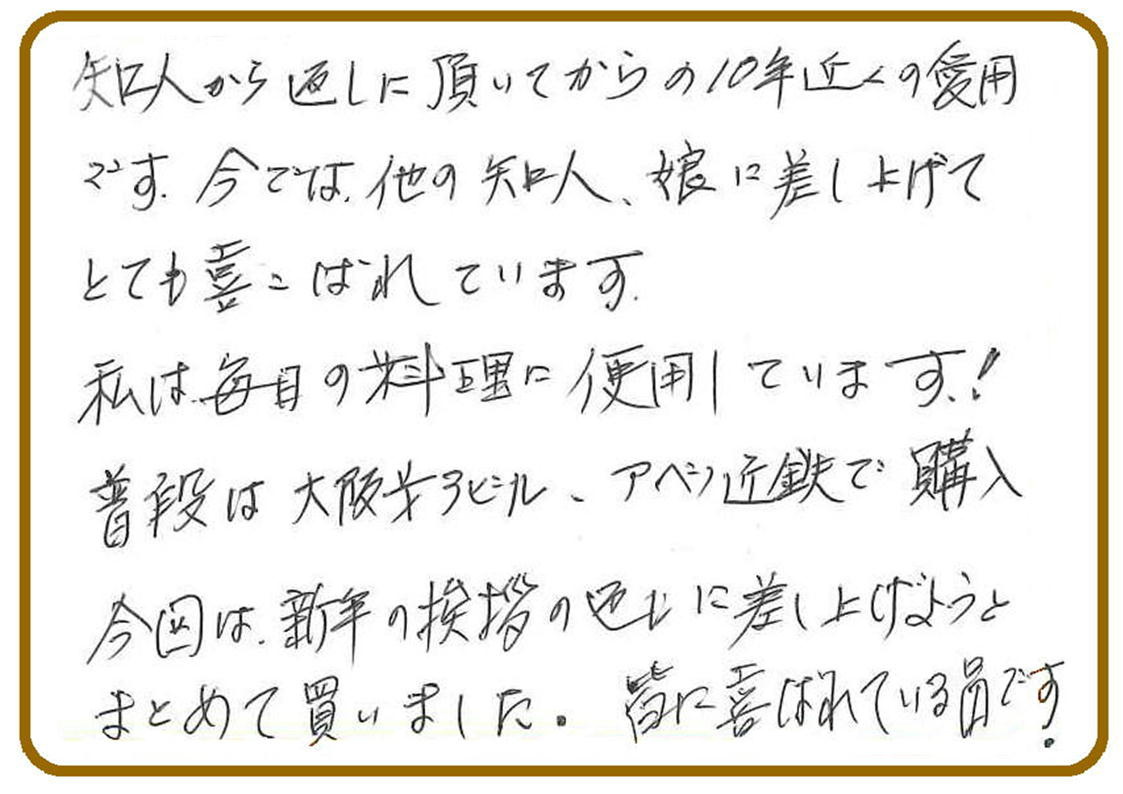 知人から返しに頂いてからの10年近くの愛用
です.今では.他の知人、娘に差し上げて
とても喜こばれています.
私は毎日の料理に使用しています.!
普段は大阪才3ビル、アベノ近鉄で購入
今回は.新年の挨拶の返しに差し上げようと
まとめて買いました。皆に喜ばれている品です.